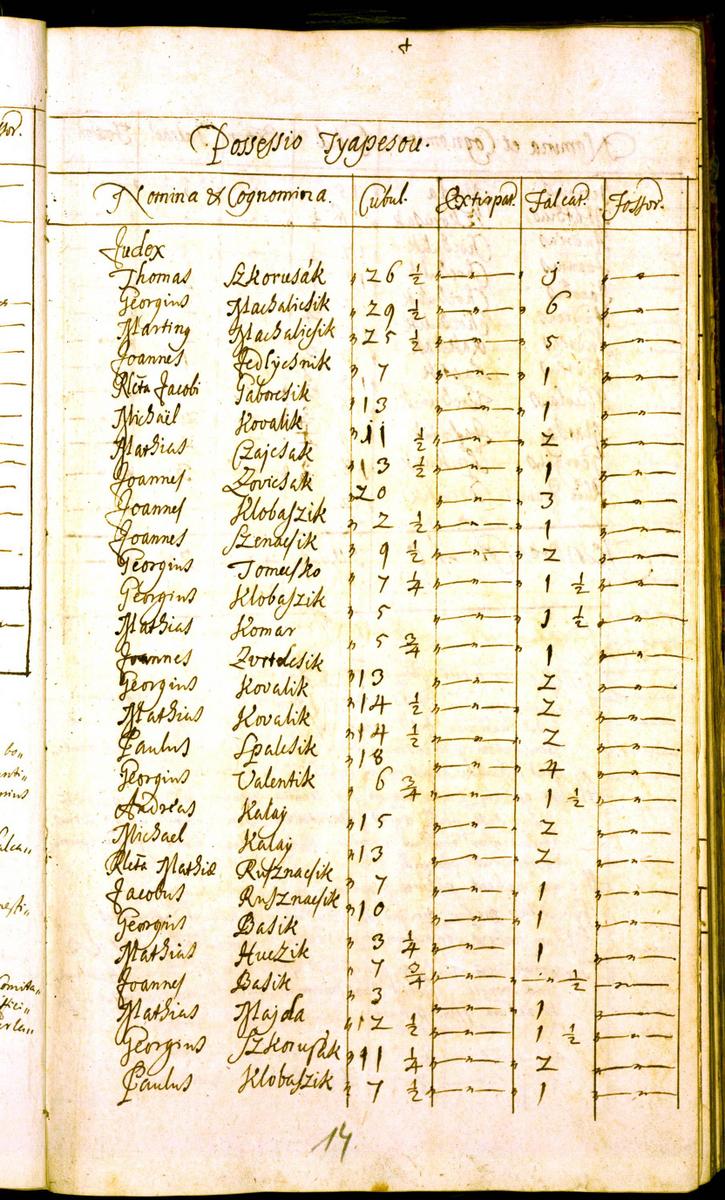 Possessio Tyapesou.
Nomina & Cognomina. Cubul. Extirpat. Falcat. Fossor.
Judex
Thomas Szkorusák " 26 1/2 " — " — " 5 " — " —
Georgius Machalicsik " 29 1/2 " — " — " 6 " — " —
Marting Machalicsik " 25 1/2 " — " — " 5 " — " —
Joannes Jedlycsnik " 7 " — " — " 1 " — " —
Rlcta Jacobi Gaborcsik " 13 " — " — " 1 " — " —
Michael Kovalik " 11 1/2 " — " — " 2 " — " —
Mathias Czajcsak " 13 1/2 " — " — " 1 " — " —
Joannes Zovicsak " 20 " — " — " 3 " — " —
Joannes Klobaszik " 2 1/2 " — " — " 1 " — " —
Joannes Szenacsik " 9 1/2 " — " — " 2 " — " —
Georgius Tomecsko " 7 1/4 " — " — " 1 1/2 " — " —
Georgius Klobaszik " 5 " — " — " 1 1/2 " — " —
Mathias Komar " 5 3/4 " — " — " 1 " — " —
Joannes " 13 " — " — " 2 " — " —
Georgius Kovalik " 14 1/2 " — " — " 2 " — " —
Mathias Kovalik " 14 1/2 " — " — " 2 " — " —
Paulus Spalcsik " 18 " — " — " 4 " — " —
Georgius Valentik " 6 3/4 " — " — " 1 1/2 " — " —
Andreas Kalaj " 15 " — " — " 2 " — " —
Michael Kalaj " 13 " — " — " 2 " — " —
Rlcta Mathiæ Rusznacsik " 7 " — " — " 1 " — " —
Jacobus Rusznacsik " 10 " — " — " 1 " — " —
Georgius Basik " 3 1/4 " — " — " 1 " — " —
Mathias Huczik " 7 3/4 " — " — " — 1/2 " — " —
Joannes Basik " 3 " — " — " 1 " — " —
Mathias Majda " 12 1/2 " — " — " 1 1/2 " — " —
Georgius Szkorusák " 11 1/4 " — " — " 2 " — " —
Paulus Klobaszik " 7 1/2 " — " — " 1 " — " —
14